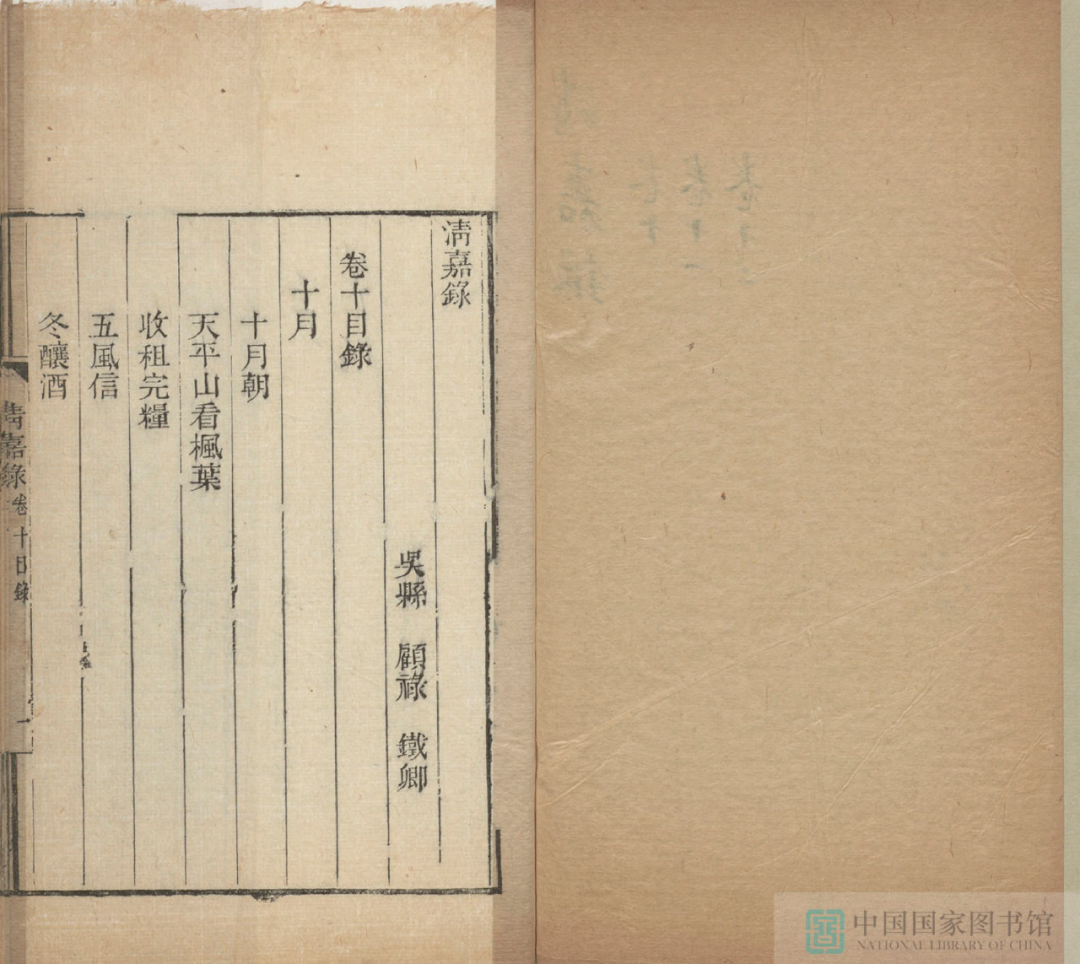 清嘉錄
吳� 顧祿 鐵卿
卷十目錄
十月
十月朝
天平山看楓葉
收租完糧
五風信
冬釀酒
清嘉錄 卷十目錄 一
中国国家图书馆
NATIONAL LIBRARY OF CHINA